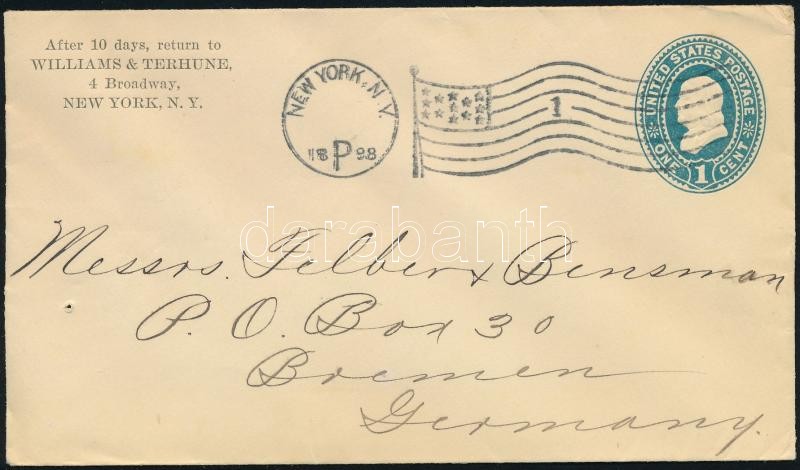 After 10 days, return to
WILLIAMS & TERHUNE,
4 Broadway,
NEW YORK, N. Y.
NEW YORK, N.Y.
18 P 98
1
UNITED STATES POSTAGE
ONE 1 CENT
darabanth
Messrs. Felber & Bensman
P. O. Box 30
Bremen
Germany.